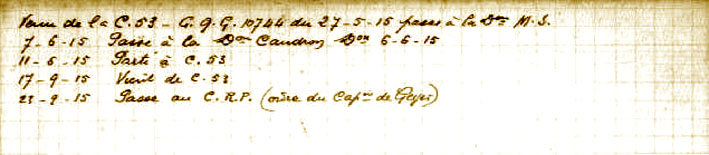 Venu de la C.53 - G.Q.G. 10744 du 27-5-15 passe à la Don M.S.
7-6-15 Passé à la Don Caudron Don 6-6-15
11-6-15 Parti à C.53
17-9-15 Vient de C.53
23-9-15 Passe au C.R.P. (ordre du Capne de